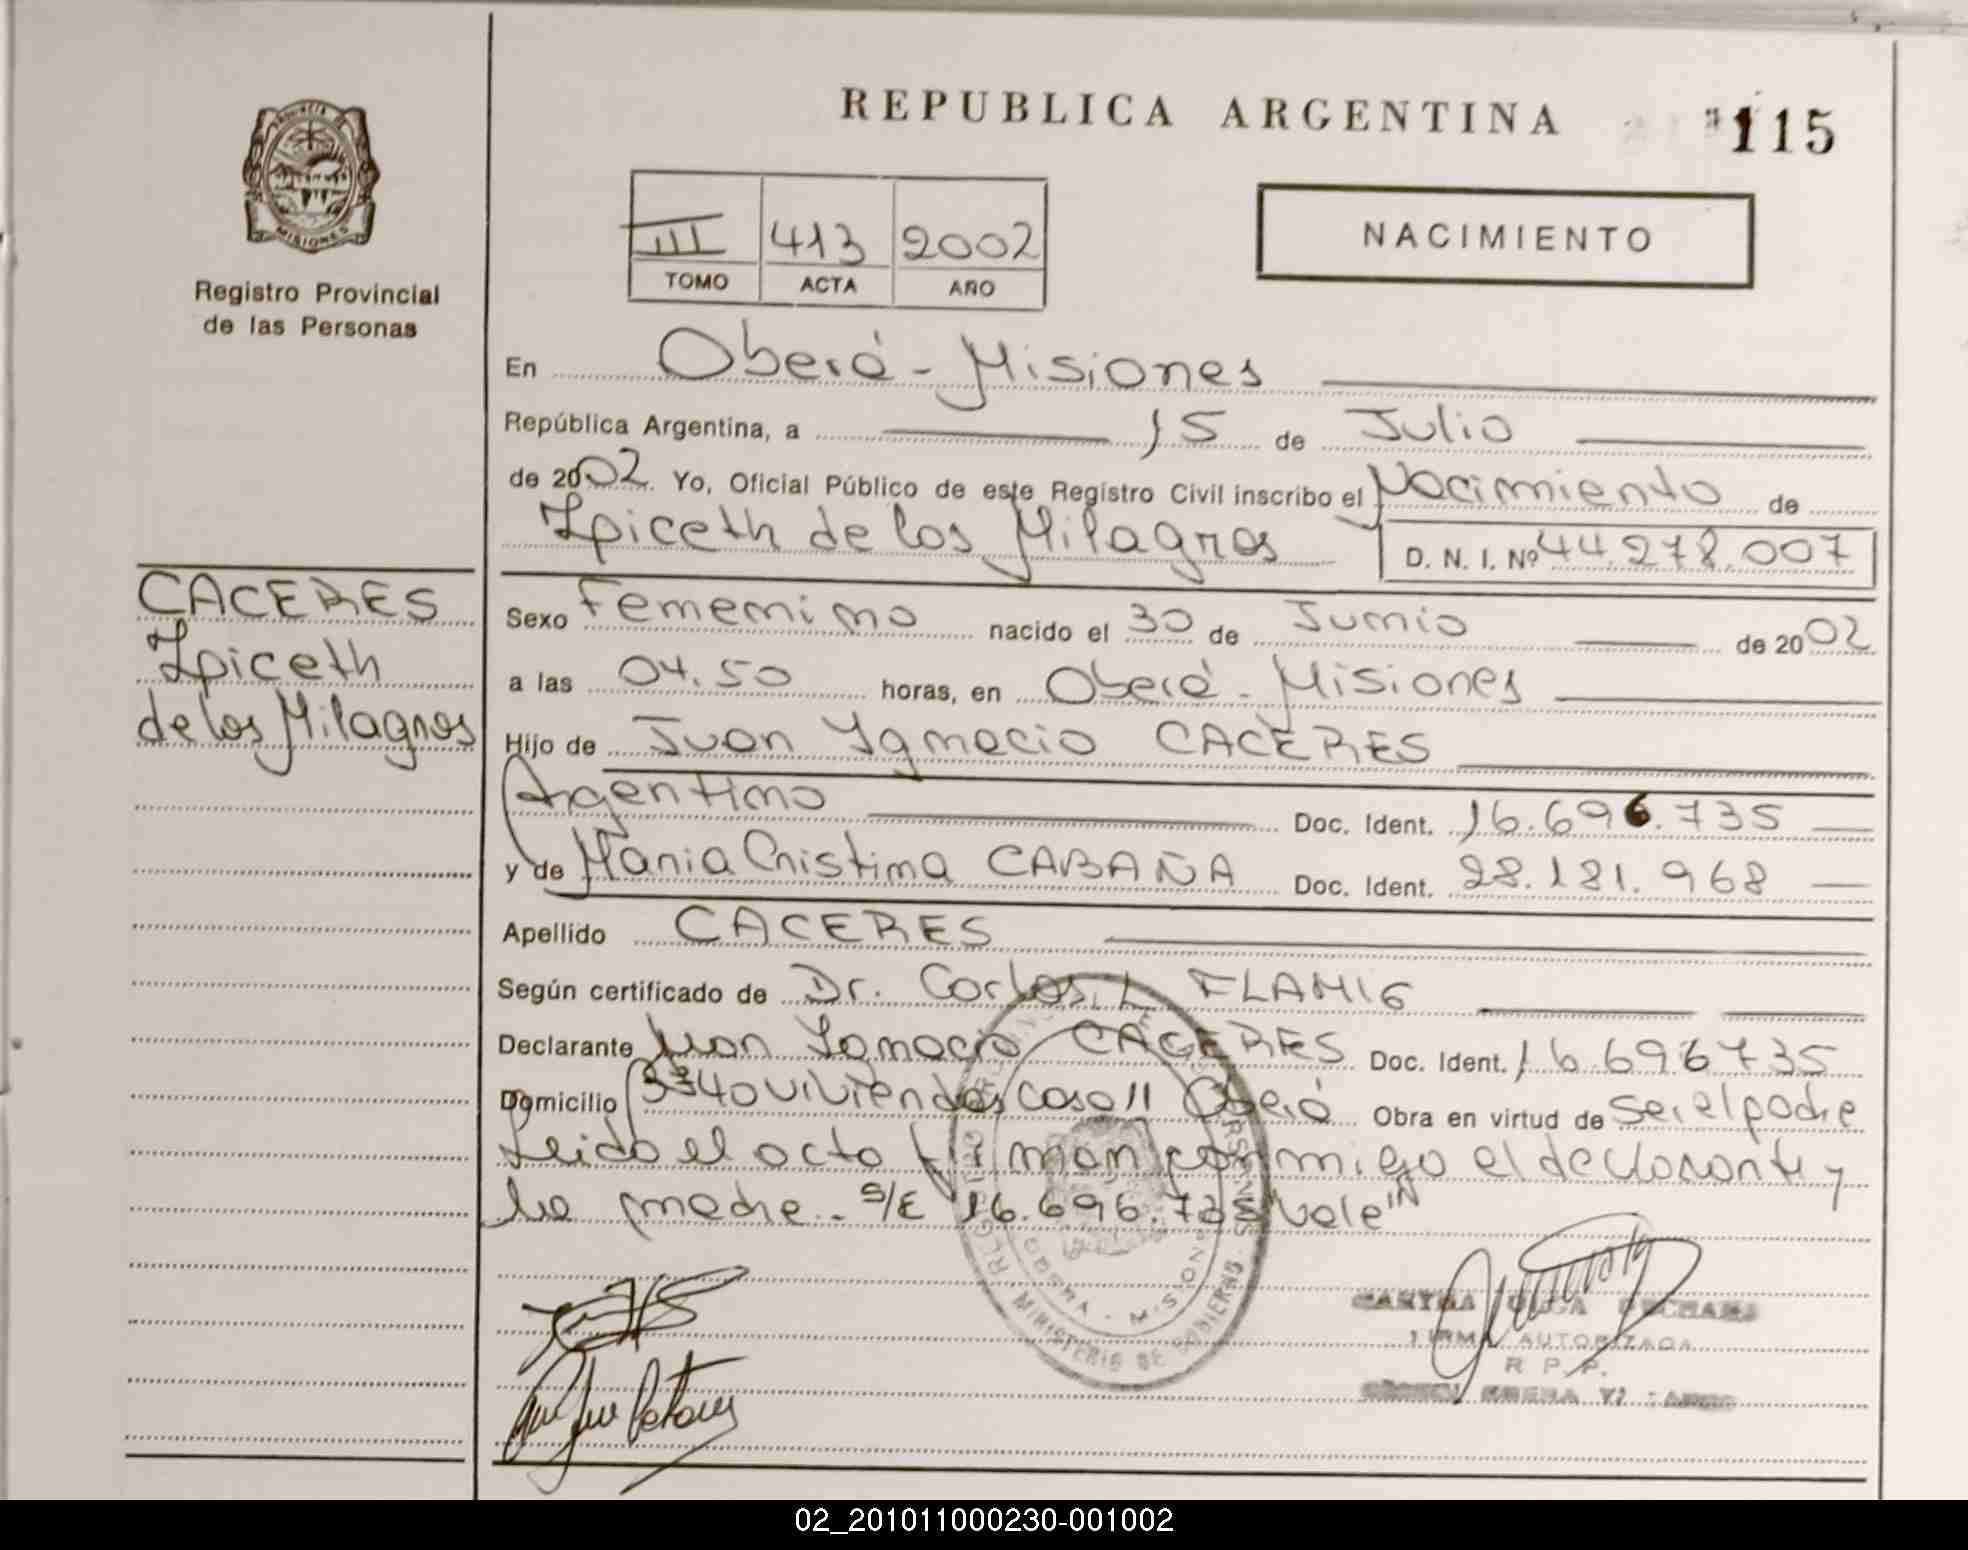 REPUBLICA ARGENTINA
115
PROVINCIA DE
MISIONES
Registro Provincial
de las Personas
III 413 2002
TOMO ACTA AÑO
NACIMIENTO
En Oberá - Misiones
República Argentina, a 15 de Julio
de 2002 Yo, Oficial Público de este Registro Civil inscribo el Nacimiento de
Ipiceth de los Milagros D. N. I. Nº 44.278.007
CACERES
Ipiceth
de los Milagros
Sexo Femenino nacido el 30 de Junio de 2002
a las 04.50 horas, en Oberá - Misiones
Hijo de Juan Ygnacio CACERES
Argentino Doc. Ident. 16.696.735
y de Maria Cristina CABAÑA Doc. Ident. 28.181.968
Apellido CACERES
Según certificado de Dr. Carlos L FLAMIG
Declarante Juan Ygnacio CACERES Doc. Ident. 16.696735
Domicilio 40 viviendas casa 11 Oberá Obra en virtud de ser el padre
Leido el acta firman conmigo el declarante y
la madre - S/E 16.696.735 Vale
MINISTERIO DE GOBIERNO
FIRMA AUTORIZADA
R. P. P.
02_201011000230-001002